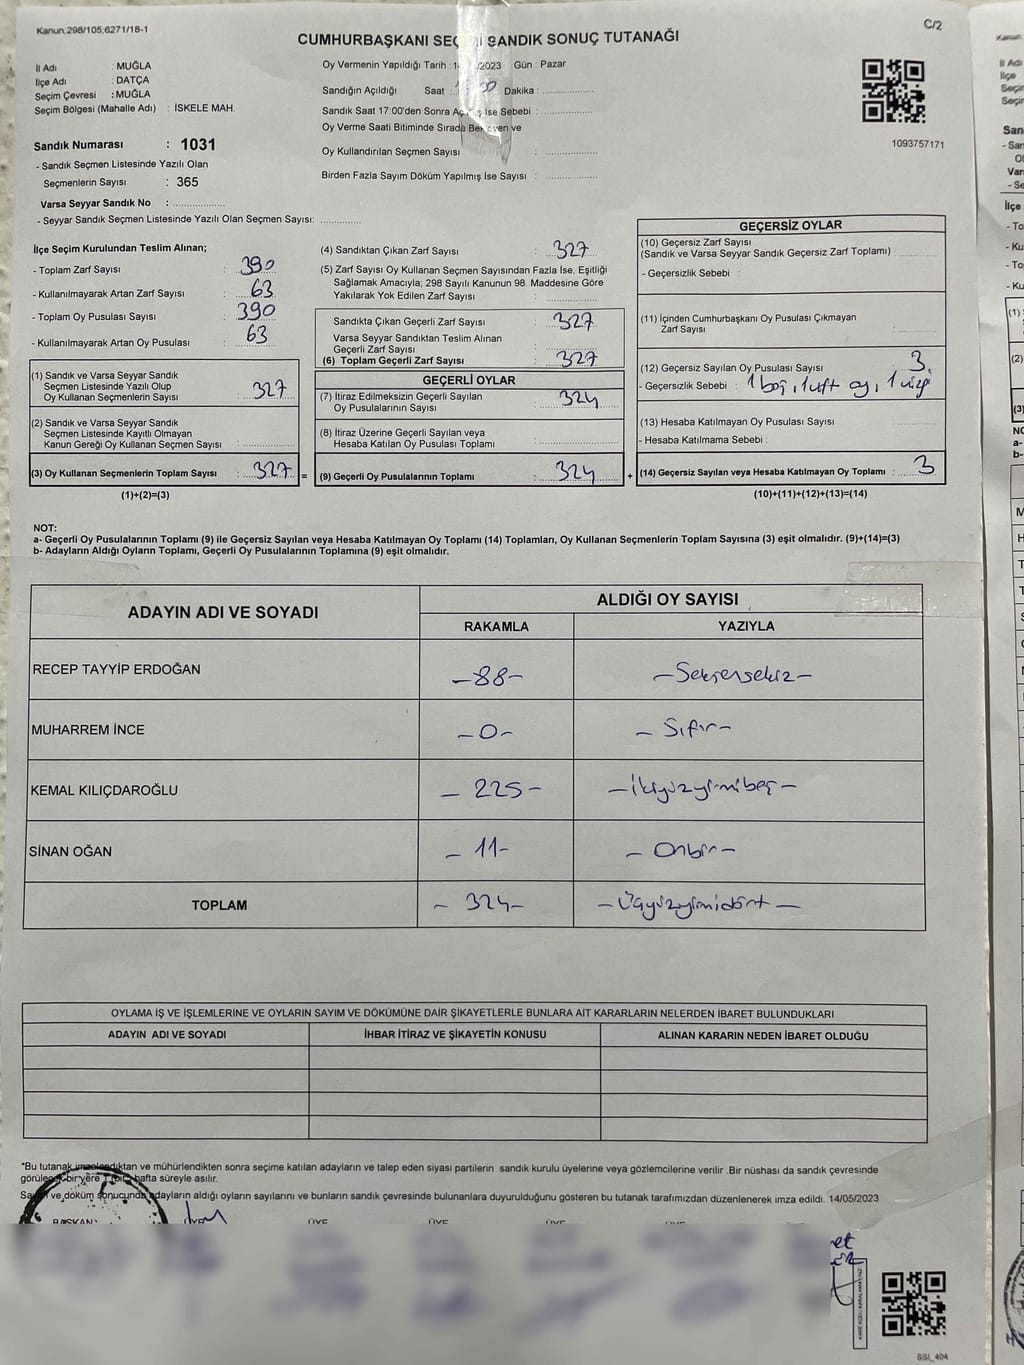 Kanun:298/105;6271/18-1
C/2
CUMHURBAŞKANI SEÇİMİ SANDIK SONUÇ TUTANAĞI
İl Adı : MUĞLA
İlçe Adı : DATÇA
Seçim Çevresi : MUĞLA
Seçim Bölgesi (Mahalle Adı) : İSKELE MAH.
Oy Vermenin Yapıldığı Tarih : /2023 Gün : Pazar
Sandığın Açıldığı Saat : Dakika :
Sandık Saat 17:00'den Sonra İse Sebebi :
Oy Verme Saati Bitiminde Sırada Bekleyen ve
Oy Kullandırılan Seçmen Sayısı :
Birden Fazla Sayım Döküm Yapılmış İse Sayısı :
1093757171
Sandık Numarası : 1031
- Sandık Seçmen Listesinde Yazılı Olan
Seçmenlerin Sayısı : 365
Varsa Seyyar Sandık No :
- Seyyar Sandık Seçmen Listesinde Yazılı Olan Seçmen Sayısı:
İlçe Seçim Kurulundan Teslim Alınan;
- Toplam Zarf Sayısı : 390
- Kullanılmayarak Artan Zarf Sayısı : 63
- Toplam Oy Pusulası Sayısı : 390
- Kullanılmayarak Artan Oy Pusulası : 63
(1) Sandık ve Varsa Seyyar Sandık
Seçmen Listesinde Yazılı Olup
Oy Kullanan Seçmenlerin Sayısı : 327
(2) Sandık ve Varsa Seyyar Sandık
Seçmen Listesinde Kayıtlı Olmayan
Kanun Gereği Oy Kullanan Seçmen Sayısı :
(3) Oy Kullanan Seçmenlerin Toplam Sayısı : 327 =
(1)+(2)=(3)
(4) Sandıktan Çıkan Zarf Sayısı : 327
(5) Zarf Sayısı Oy Kullanan Seçmen Sayısından Fazla İse, Eşitliği
Sağlamak Amacıyla; 298 Sayılı Kanunun 98. Maddesine Göre
Yakılarak Yok Edilen Zarf Sayısı :
Sandıkta Çıkan Geçerli Zarf Sayısı : 327
Varsa Seyyar Sandıktan Teslim Alınan
Geçerli Zarf Sayısı :
(6) Toplam Geçerli Zarf Sayısı : 327
GEÇERLİ OYLAR
(7) İtiraz Edilmeksizin Geçerli Sayılan
Oy Pusulalarının Sayısı : 324
(8) İtiraz Üzerine Geçerli Sayılan veya
Hesaba Katılan Oy Pusulası Toplamı :
(9) Geçerli Oy Pusulalarının Toplamı : 324 +
GEÇERSİZ OYLAR
(10) Geçersiz Zarf Sayısı
(Sandık ve Varsa Seyyar Sandık Geçersiz Zarf Toplamı) :
- Geçersizlik Sebebi :
(11) İçinden Cumhurbaşkanı Oy Pusulası Çıkmayan
Zarf Sayısı :
(12) Geçersiz Sayılan Oy Pusulası Sayısı : 3.
- Geçersizlik Sebebi : 1 boş, 1 çift oy, 1
(13) Hesaba Katılmayan Oy Pusulası Sayısı :
- Hesaba Katılmama Sebebi :
(14) Geçersiz Sayılan veya Hesaba Katılmayan Oy Toplamı : 3
(10)+(11)+(12)+(13)=(14)
NOT:
a- Geçerli Oy Pusulalarının Toplamı (9) ile Geçersiz Sayılan veya Hesaba Katılmayan Oy Toplamı (14) Toplamları, Oy Kullanan Seçmenlerin Toplam Sayısına (3) eşit olmalıdır. (9)+(14)=(3)
b- Adayların Aldığı Oyların Toplamı, Geçerli Oy Pusulalarının Toplamına (9) eşit olmalıdır.
ADAYIN ADI VE SOYADI
ALDIĞI OY SAYISI
RAKAMLA
YAZIYLA
RECEP TAYYİP ERDOĞAN -88- -Seksensekiz-
MUHARREM İNCE -0- -Sıfır-
KEMAL KILIÇDAROĞLU -225- -İkiyüzyirmibeş-
SİNAN OĞAN -11- -Onbir-
TOPLAM -324- -Üçyüzyirmidört-
OYLAMA İŞ VE İŞLEMLERİNE VE OYLARIN SAYIM VE DÖKÜMÜNE DAİR ŞİKAYETLERLE BUNLARA AİT KARARLARIN NELERDEN İBARET BULUNDUKLARI
ADAYIN ADI VE SOYADI
İHBAR İTİRAZ VE ŞİKAYETİN KONUSU
ALINAN KARARIN NEDEN İBARET OLDUĞU
*Bu tutanak imzalandıktan ve mühürlendikten sonra seçime katılan adayların ve talep eden siyasi partilerin sandık kurulu üyelerine veya gözlemcilerine verilir. Bir nüshası da sandık çevresinde
görülecek bir yere 1 bir hafta süreyle asılır.
Sayım ve döküm sonucunda adayların aldığı oyların sayılarını ve bunların sandık çevresinde bulunanlara duyurulduğunu gösteren bu tutanak tarafımızdan düzenlenerek imza edildi. 14/05/2023
BAŞKAN ÜYE ÜYE ÜYE ÜYE ÜYE ÜYE
SSI_404